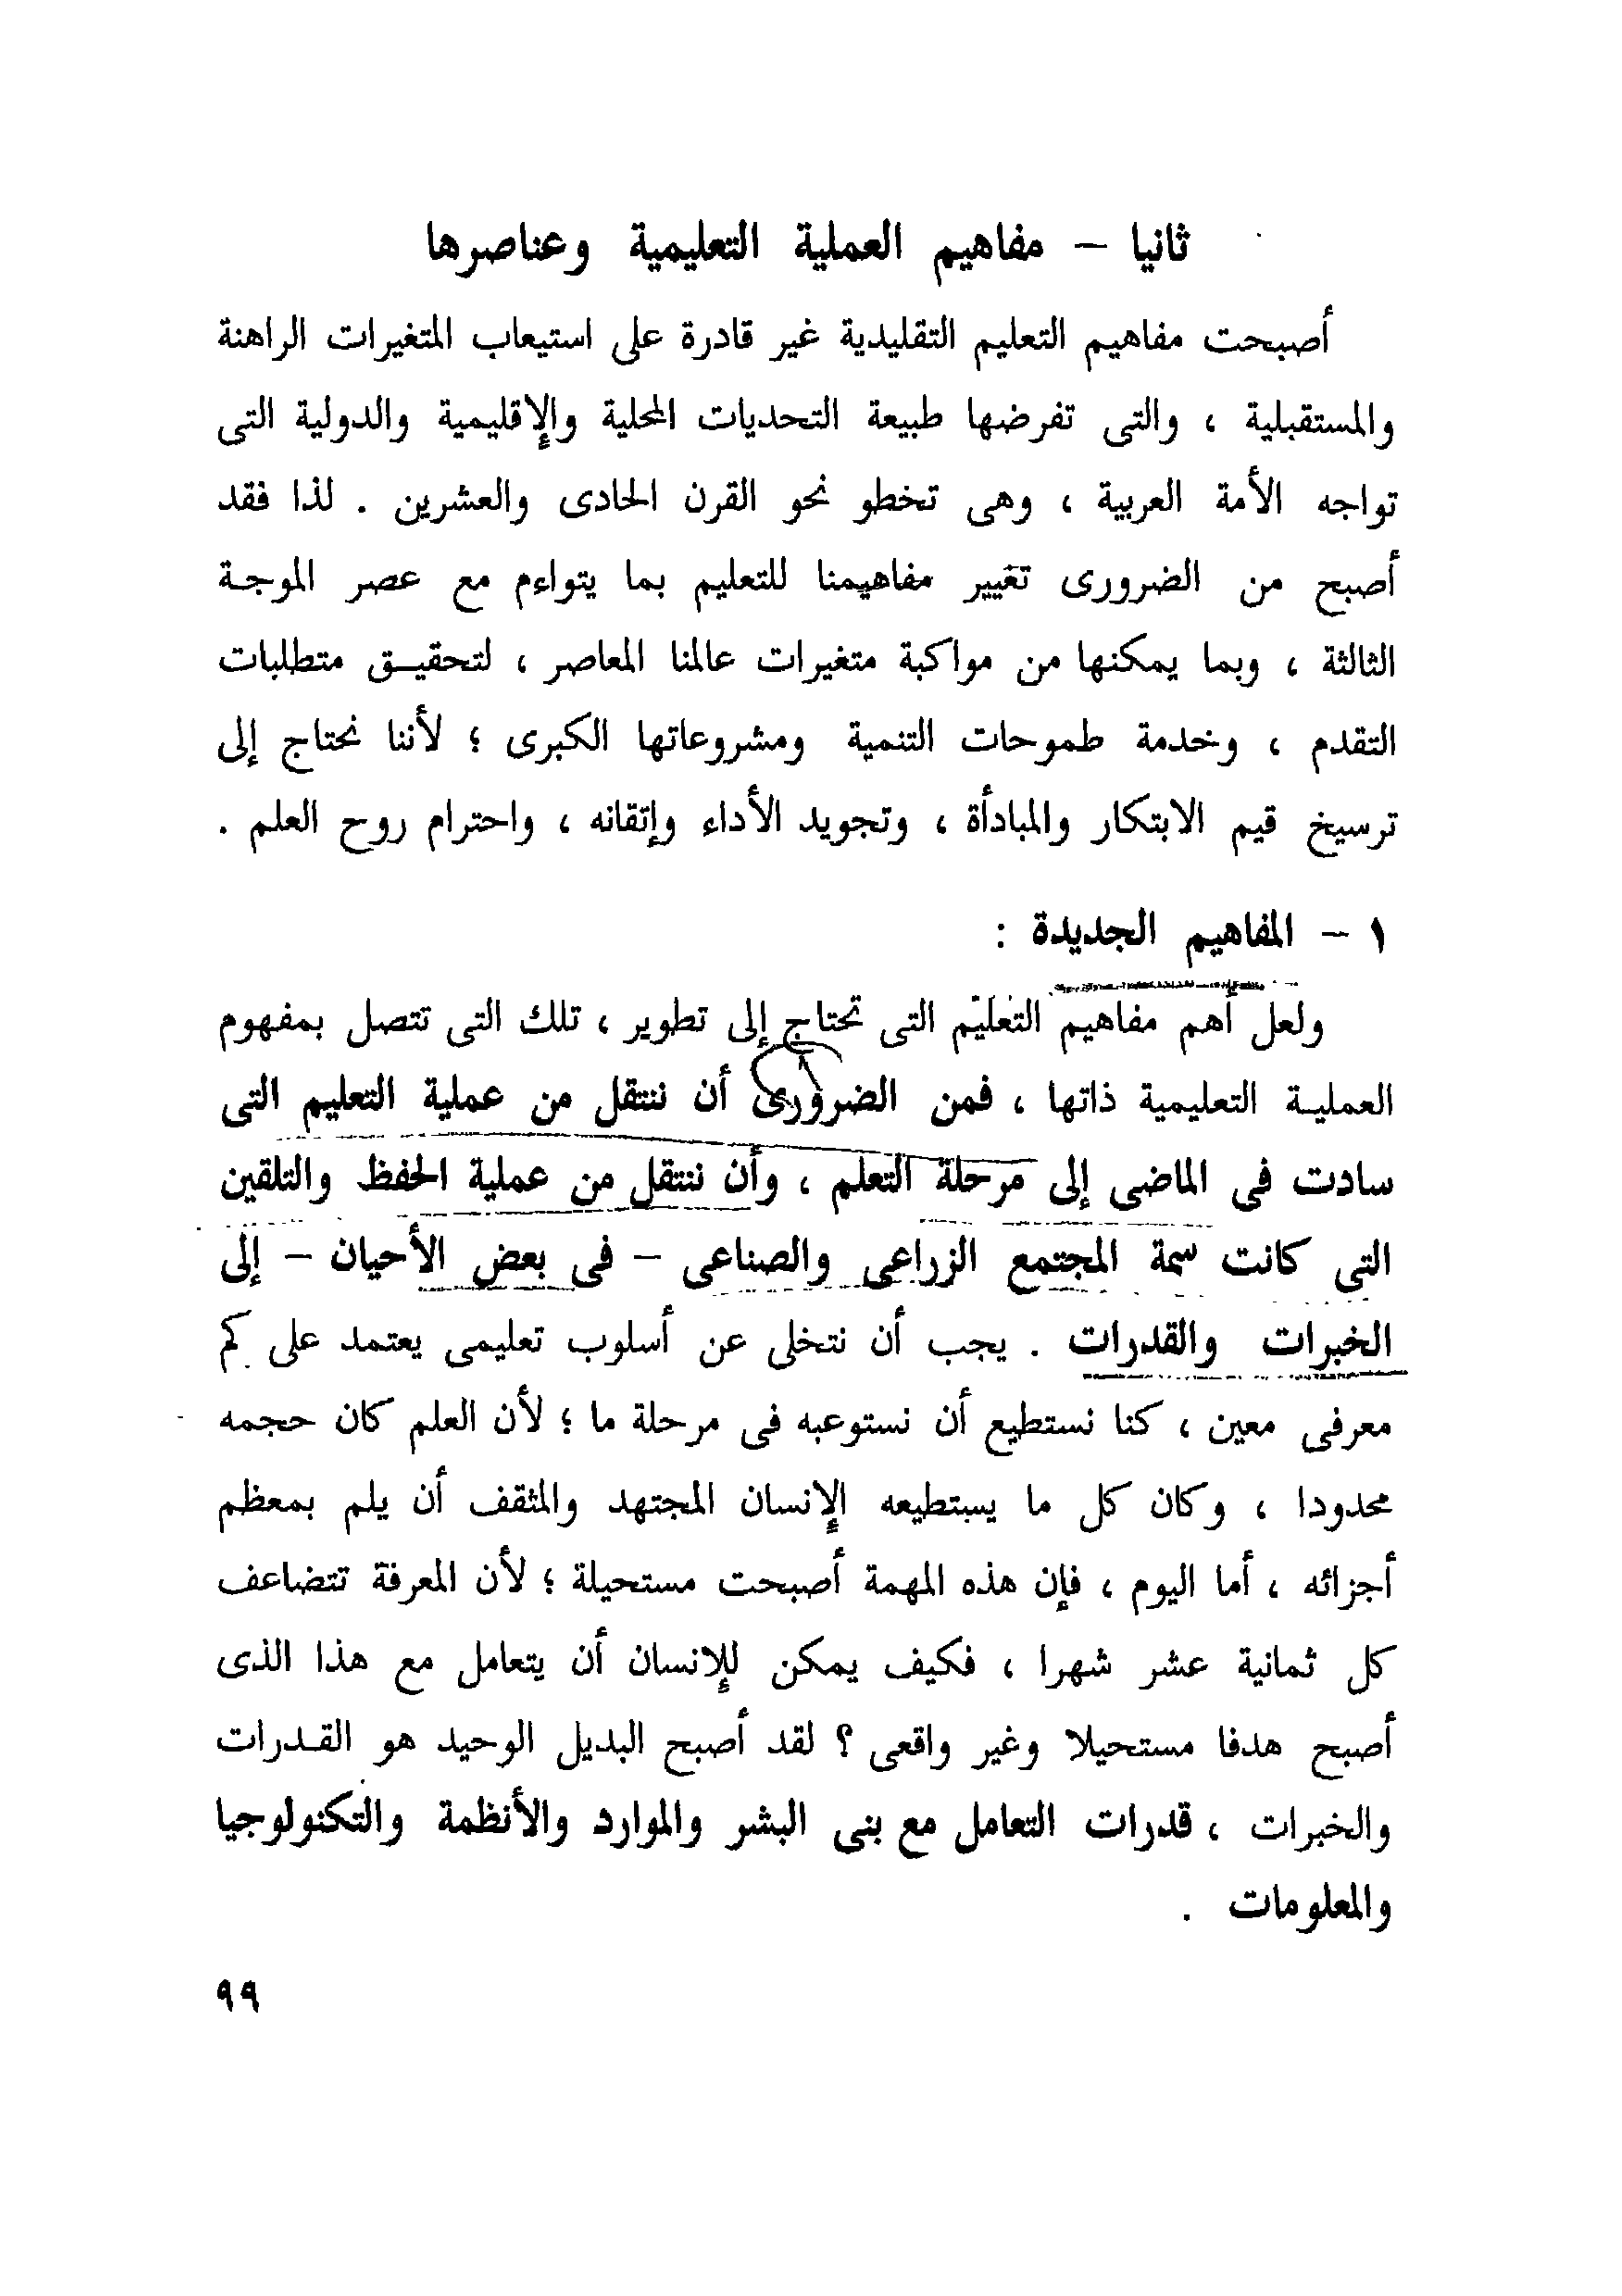 ثانيا – مفاهيم العملية التعليمية وعناصرها
أصبحت مفاهيم التعليم التقليدية غير قادرة على استيعاب المتغيرات الراهنة
والمستقبلية ، والتى تفرضها طبيعة التحديات المحلية والإقليمية والدولية التى
تواجه الأمة العربية ، وهى تخطو نحو القرن الحادى والعشرين . لذا فقد
أصبح من الضرورى تغيير مفاهيمنا للتعليم بما يتواءم مع عصر الموجة
الثالثة ، وبما يمكنها من مواكبة متغيرات عالمنا المعاصر ، لتحقيق متطلبات
التقدم ، وخدمة طموحات التنمية ومشروعاتها الكبرى ؛ لأننا نحتاج إلى
ترسيخ قيم الابتكار والمبادأة ، وتجويد الأداء وإتقانه ، واحترام روح العلم .
١ – المفاهيم الجديدة :
ولعل أهم مفاهيم التعليم التى تحتاج إلى تطوير ، تلك التى تتصل بمفهوم
العملية التعليمية ذاتها ، فمن الضرورى أن ننتقل من عملية التعليم التى
سادت فى الماضى إلى مرحلة التعلم ، وأن ننتقل من عملية الحفظ والتلقين
التى كانت سمة المجتمع الزراعى والصناعى – فى بعض الأحيان – إلى
الخبرات والقدرات . يجب أن نتخلى عن أسلوب تعليمى يعتمد على كم
معرفى معين ، كنا نستطيع أن نستوعبه فى مرحلة ما ؛ لأن العلم كان حجمه
محدودا ، وكان كل ما يستطيعه الإنسان المجتهد والمثقف أن يلم بمعظم
أجزائه ، أما اليوم ، فإن هذه المهمة أصبحت مستحيلة ؛ لأن المعرفة تتضاعف
كل ثمانية عشر شهرا ، فكيف يمكن للإنسان أن يتعامل مع هذا الذى
أصبح هدفا مستحيلا وغير واقعى ؟ لقد أصبح البديل الوحيد هو القدرات
والخبرات ، قدرات التعامل مع بنى البشر والموارد والأنظمة والتكنولوجيا
والمعلومات .
٩٩